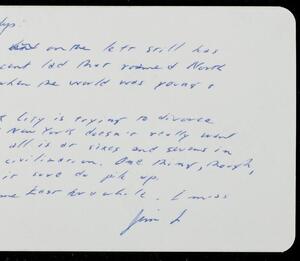 on the left still has
lad that roamed North
when the world was young &
City is trying to divorce
New York doesn't really want
all is at sixes and sevens in
civilization. One thing, though,
sure do pile up.
East for awhile. I miss
Jim